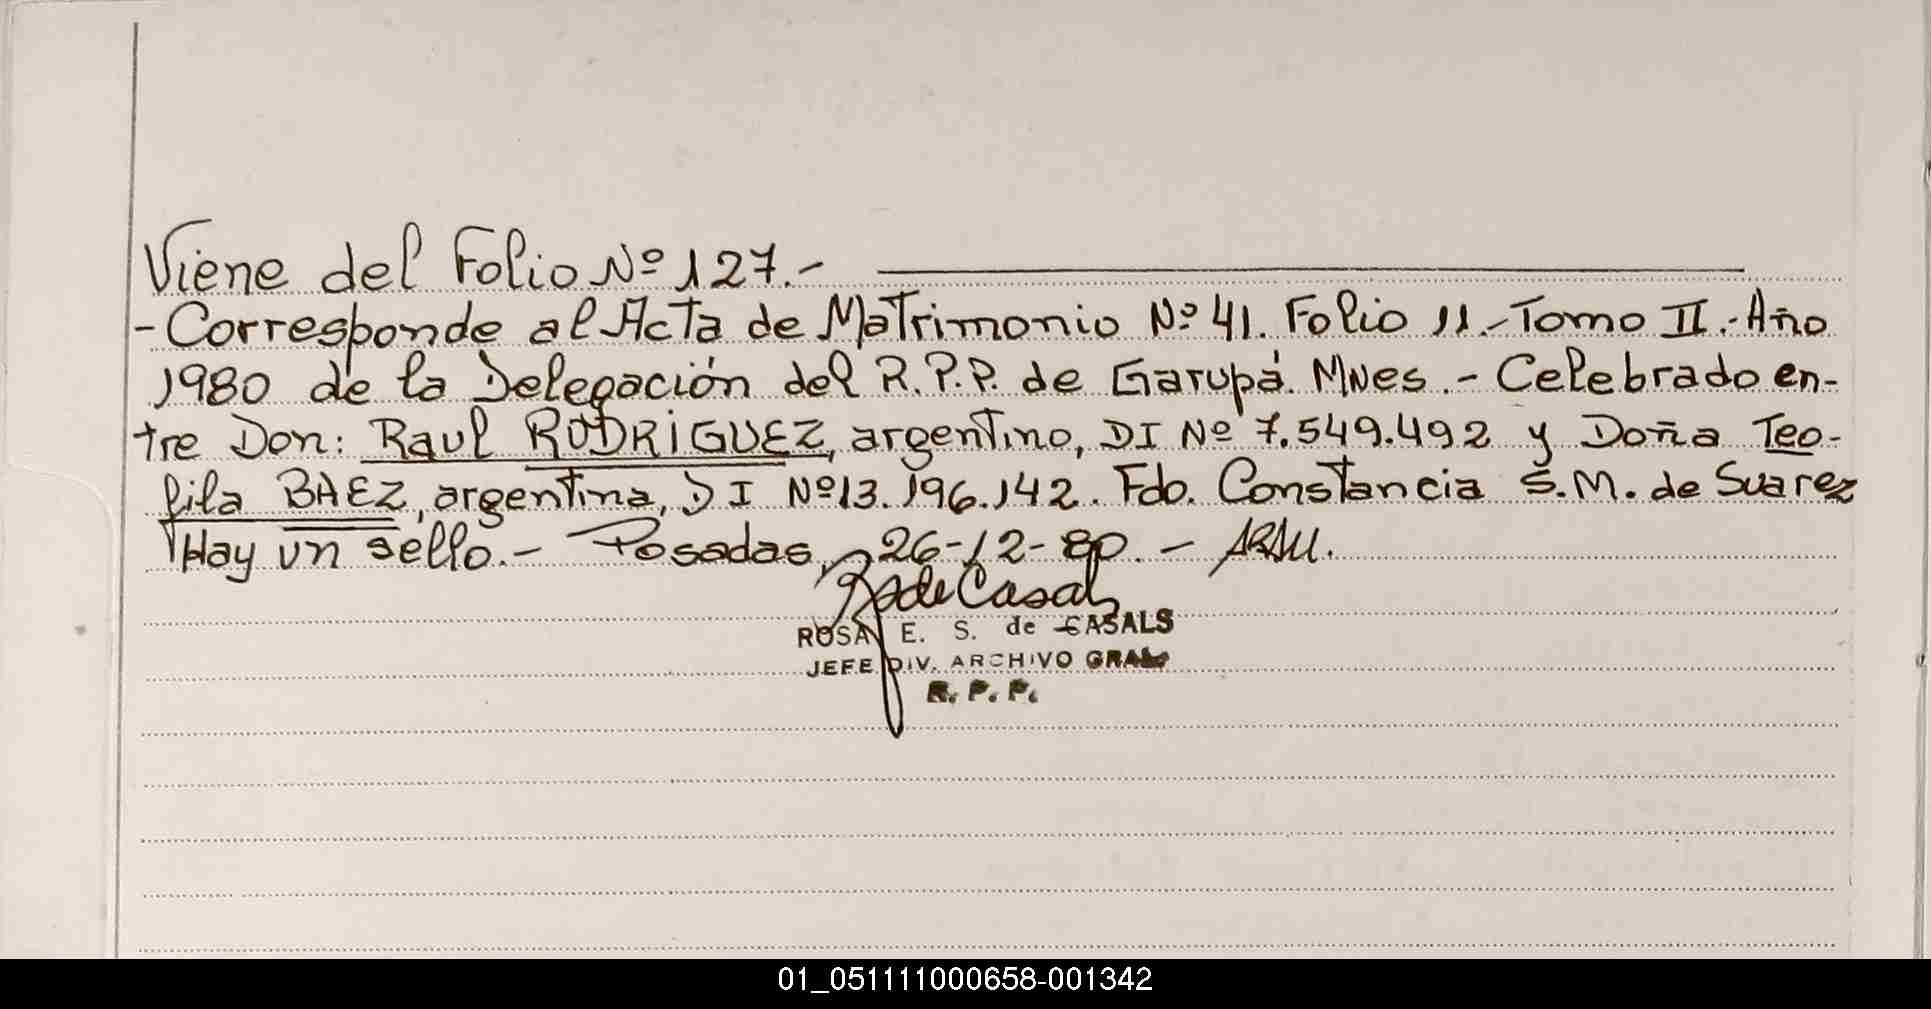 Viene del Folio Nº 127.-
- Corresponde al Acta de Matrimonio Nº 41. Folio 11.- Tomo II.- Año
1980 de la Delegación del R.P.P. de Garupá. Mnes.- Celebrado en-
tre Don: Raul RODRIGUEZ, argentino, DI Nº 7.549.492 y Doña Teo-
fila BAEZ, argentina, DI Nº 13.196.142. Fdo. Constancia S.M. de Suarez
Hay un sello.- Posadas, 26-12-80.-
R de Casals
ROSA E. S. de CASALS
JEFE DIV. ARCHIVO GRAL
R. P. P.
01_051111000658-001342